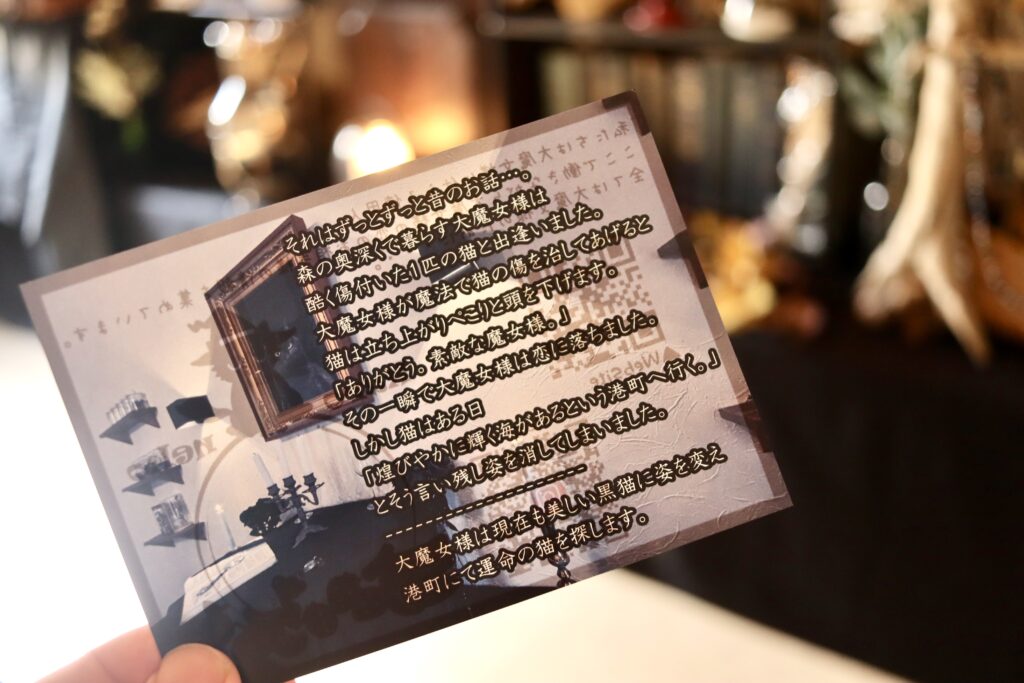 それはずっとずっと昔のお話…。
森の奥深くで暮らす大魔女様は
酷く傷付いた1匹の猫と出逢いました。
大魔女様が魔法で猫の傷を治してあげると
猫は立ち上がりぺこりと頭を下げます。
「ありがとう。素敵な魔女様。」
その一瞬で大魔女様は恋に落ちました。
しかし猫はある日
「煌びやかに輝く海があるという港町へ行く。」
とそう言い残し姿を消してしまいました。
--------------------
大魔女様は現在も美しい黒猫に姿を変え
港町にて運命の猫を探します。